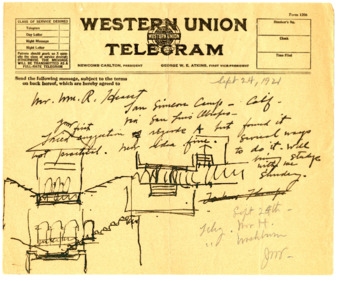 Form 1206
CLASS OF SERVICE DESIRED
Telegram
Day Letter
Night Message
Night Letter
Patrons should mark an X opposite the class of service desired; OTHERWISE THE MESSAGE WILL BE TRANSMITTED AS A FULL-RATE TELEGRAM
WESTERN UNION
TELEGRAM
NEWCOMB CARLTON, PRESIDENT
GEORGE W. E. ATKINS, FIRST VICE-PRESIDENT
Receiver's No.
Check
Time Filed
Send the following message, subject to the terms
on back hereof, which are hereby agreed to
Sept 24, 1921
Mr. Wm. R. Hearst
San Simeon Camp - Calif -
via San Luis Obispo -
Your first suggestion
A but found it
not practical. New Idea fine. Several ways
to do it. Will
bring
with me
Sunday.
Sept 24th -
Mr. H.
Washburn
JM